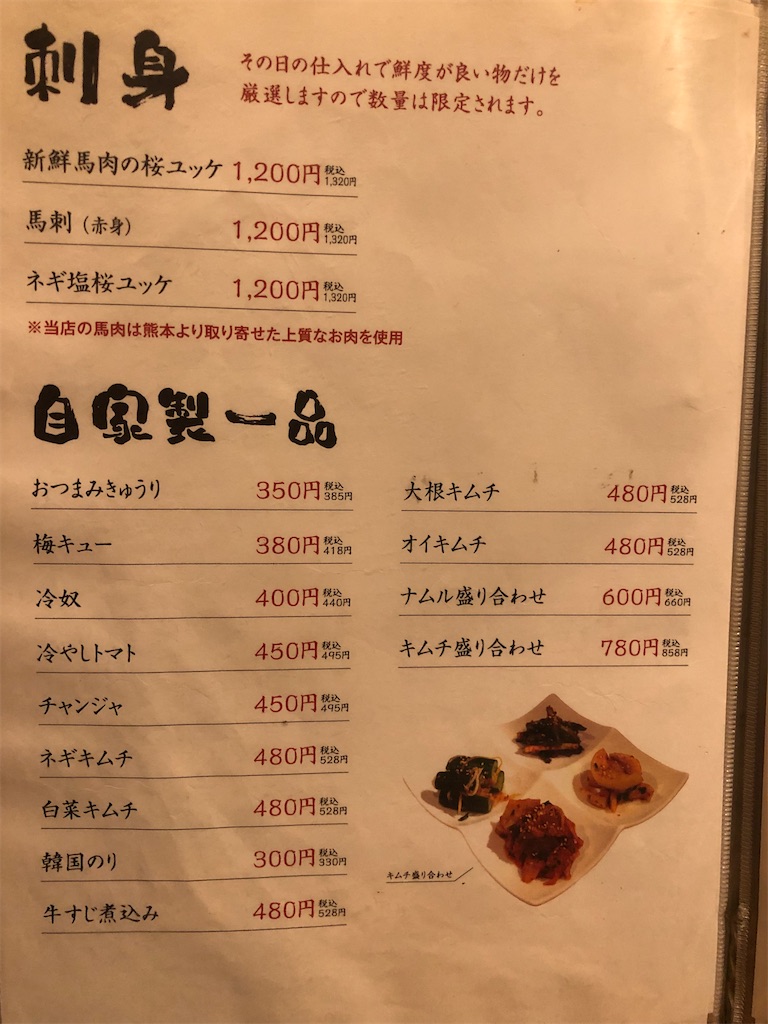 刺身
その日の仕入れで鮮度が良い物だけを
厳選しますので数量は限定されます。
新鮮馬肉の桜ユッケ 1,200円 税込1,320円
馬刺（赤身） 1,200円 税込1,320円
ネギ塩桜ユッケ 1,200円 税込1,320円
※当店の馬肉は熊本より取り寄せた上質なお肉を使用
自家製一品
おつまみきゅうり 350円 税込385円
梅キュー 380円 税込418円
冷奴 400円 税込440円
冷やしトマト 450円 税込495円
チャンジャ 450円 税込495円
ネギキムチ 480円 税込528円
白菜キムチ 480円 税込528円
韓国のり 300円 税込330円
牛すじ煮込み 480円 税込528円
大根キムチ 480円 税込528円
オイキムチ 480円 税込528円
ナムル盛り合わせ 600円 税込660円
キムチ盛り合わせ 780円 税込858円
キムチ盛り合わせ